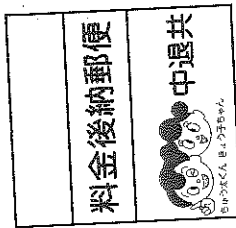 料金後納郵便
中退共
ちゅう太くん きょう子ちゃん